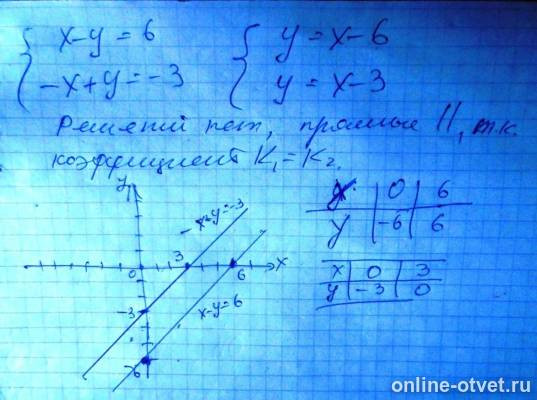 x-y=6 y=x-6
-x+y=-3 y=x-3
Решений нет, прямые ||, т.к.
коэффициент K₁=K₂.
y
-x+y=-3
3
0
6
x
-3
x-y=6
-6
x 0 6
y -6 6
x 0 3
y -3 0
online-otvet.ru